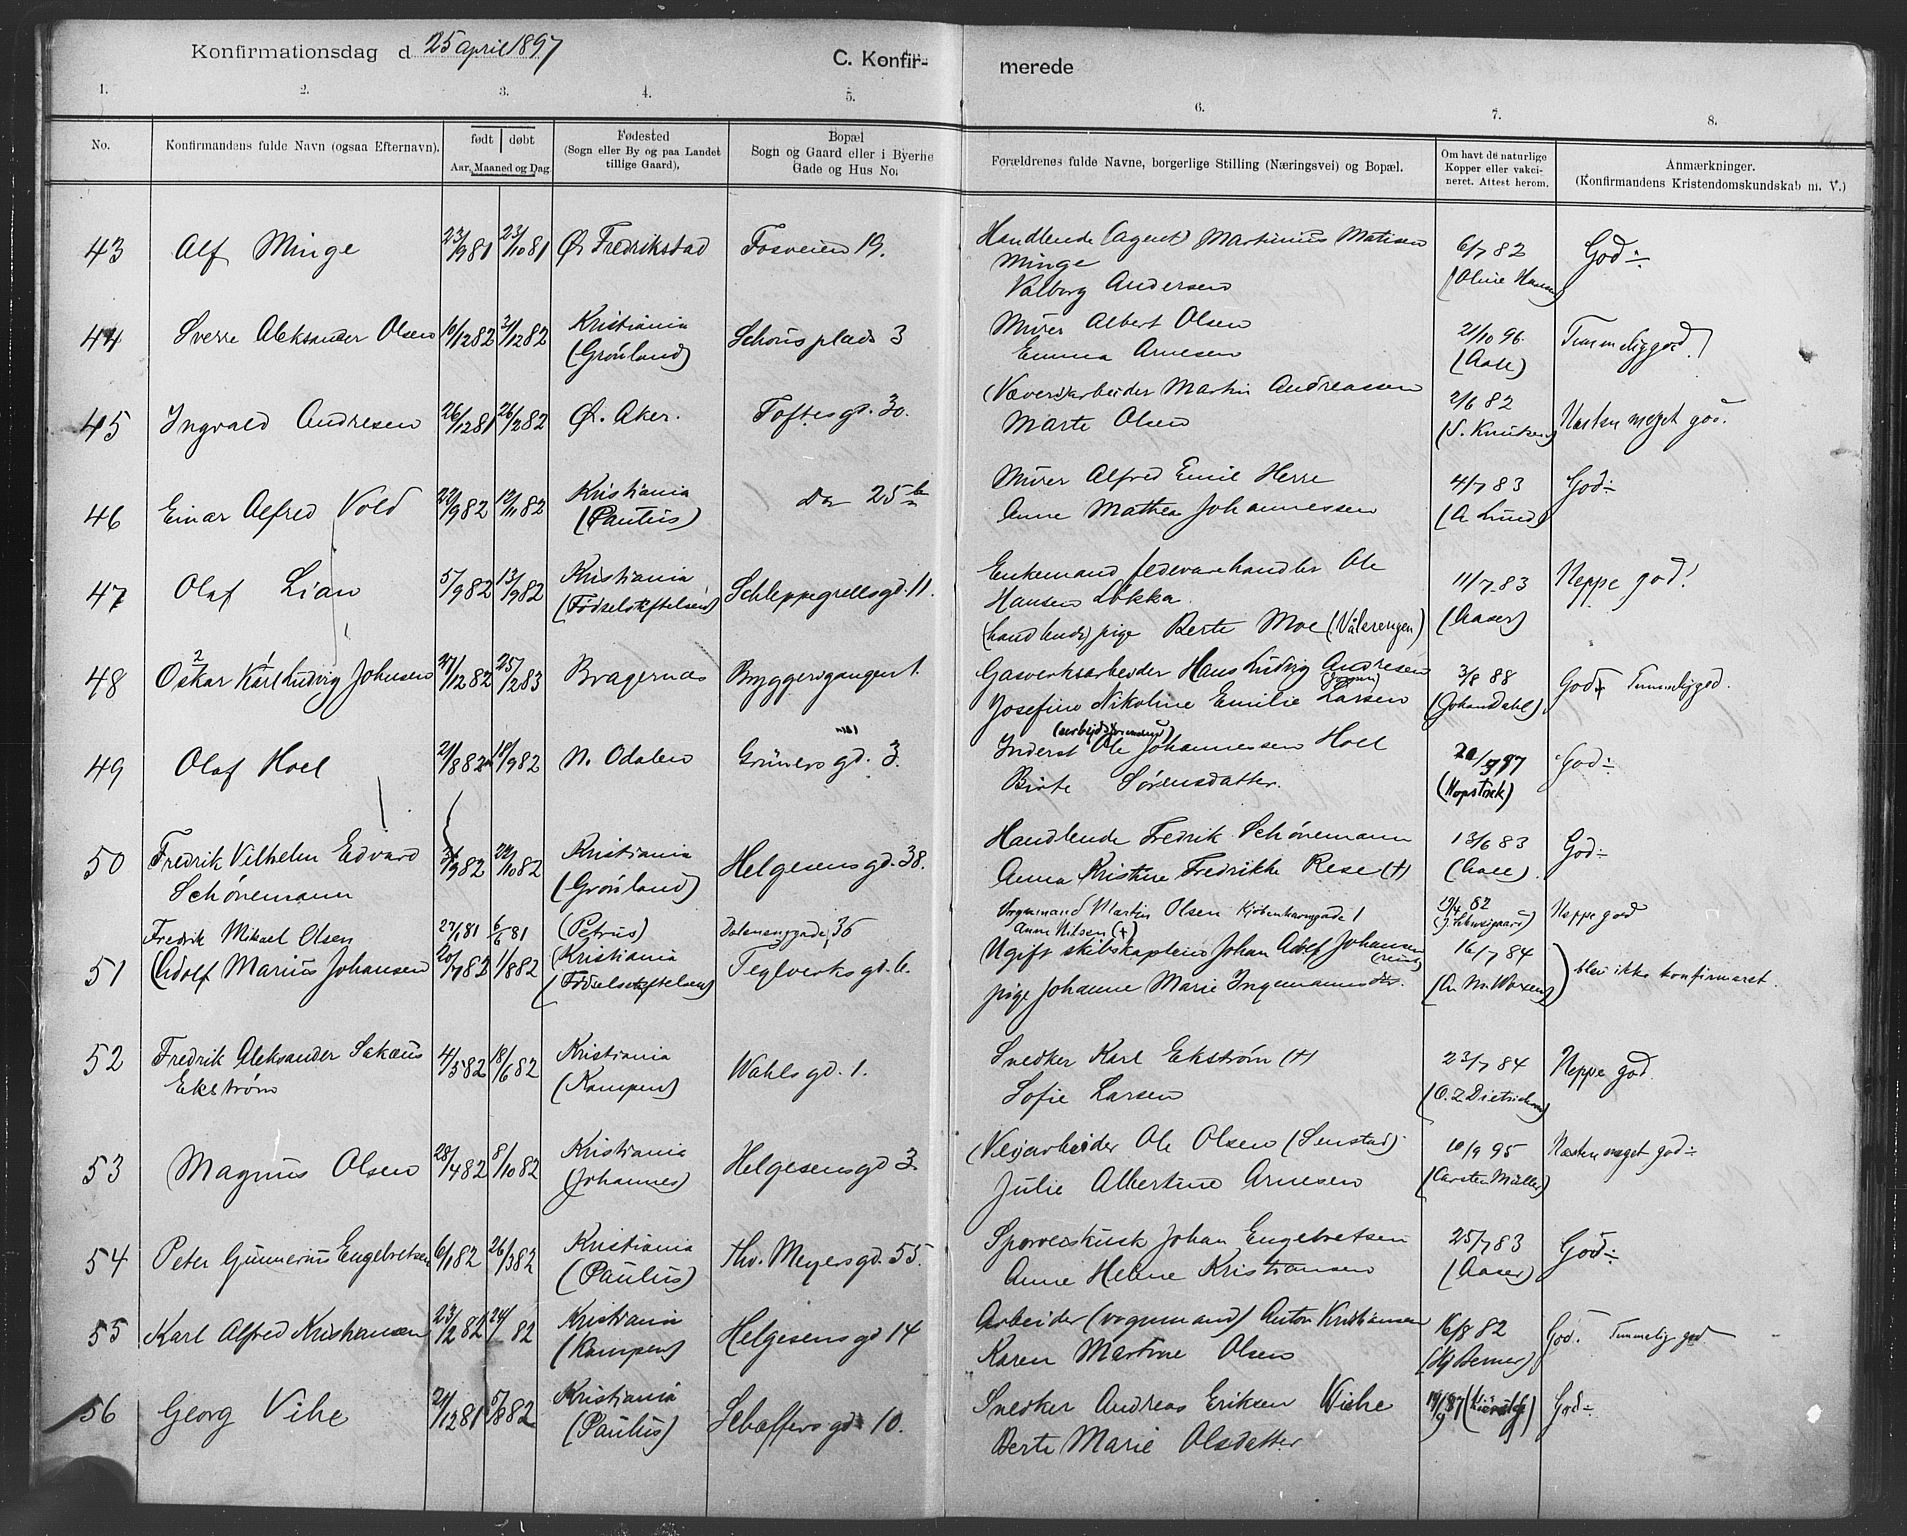 Konfirmationsdag d 25 april 1897
C. Konfir- merede
1. 2. 3. 4. 5. 6. 7. 8.
No.
Konfirmandens fulde Navn (ogsaa Efternavn).
født døbt
Aar, Maaned og Dag
Fødested
(Sogn eller By og paa Landet
tillige Gaard).
Bopæl
Sogn og Gaard eller i Byerne
Gade og Hus No.
Forældrenes fulde Navne, borgerlige Stilling (Næringsvei) og Bopæl.
Om havt de naturlige
Kopper eller vakci-
neret. Attest herom.
Anmærkninger.
(Konfirmandens Kristendomskundskab m. V.)
43 Alf Minge 23/9 81 23/10 81 Ø. Fredrikstad Fosveien 19. Handlende (agent) Martinius Matisen 6/7 82 God ÷
Minge
Valborg Andersen (Oline Hansen)
44 Sverre Aleksander Olsen 16/12 82 /12 82 Kristiania Schous plads 3 Murer Albert Olsen 21/10 96. Temmelig god!
(Grønland) Emma Arnesen (Aall)
45 Ingvald Andresen 26/12 81 26/2 82 Ø. Aker. Toftesgd. 30. (Væveri)arbeider Martin Andreassen 2/6 82 Næsten meget god.
Marte Olsen (S. Knutsen)
46 Einar Alfred Vold 22/9 82 12/11 82 Kristiania Do 25 b Murer Alfred Emil Herre 4/7 83 God ÷
(Paulus) Anne Mathea Johannessen (A Lund)
47 Olaf Lian 5/9 82 13/9 82 Kristiania Schleppegrellsgd. 11. Enkemand fedevarehandler Ole 11/7 83 Neppe god!
(Fødselsstiftelsen) Hansen Løkka
(handlende) pige Berte Moe (Vålerengen) (Aaser)
48 Oskar Karl Ludvig Johnsen 27/12 82 25/2 83 Bragernæs Bryggerigangen 1. Gasverksarbeider Hans Ludvig Andresen 3/8 88 God + Temmelig god.
2 1
Josefine Nikoline Emilie Larsen (Johan Dahl)
49 Olaf Hoel 2/8 82 18/9 82 N. Odalen Grünersgd. 3. Inderst Ole Johannessen Hoel 97 God ÷
Birte Sørensdatter. (Hopstock)
50 Fredrik Vilhelm Edvard /9 82 22/10 82 Kristiania Helgesensgd. 38. Handlende Fredrik Schønemann 13/6 83 God ÷
Schønemann (Grønland) Anna Kristine Fredrikke Rese (+) (Aall)
Fredrik Mikael Olsen 27/1 81 6/6 81 (Petrus) Dalenenggade 36 Vognmand Martin Olsen Kjøbenhavngade 1 19/4 82 Neppe god
Anne Nilsen (+)
51 (Adolf Marius Johansen 20/7 82 1/8 82 Kristiania Teglverksgd. 6. Ugift skibskaptein Johan Adolf Johansen 16/7 84 ) blev ikke konfirmeret.
(Fødselsstiftelsen) pige Johanne Marie Ingemannsdtr.
52 Fredrik Aleksander Sakæus 4/5 82 18/6 82 Kristiania Wahlsgd. 1. Snedker Karl Ekstrøm (+) 23/7 84 Neppe god.
Ekstrøm (Kampen) Sofie Larsen (O. Z Dietrichson)
53 Magnus Olsen 28/4 82 8/10 82 Kristiania Helgesensgd 3 (Vei)arbeider Ole Olsen (Senstad) 10/9 95 Næsten meget god ÷
(Johannes) Julie Albertine Arnesen (Carsten Müller)
54 Peter Gunnerius Engebretsen 6/1 82 26/3 82 Kristiania Thv. Meyersgd. 55. Sporveiskusk Johan Engebretsen 25/7 83 God ÷
(Paulus) Anne Helene Kristiansen (Aaser)
55 Karl Alfred Kristiansen 23/12 82 24/ 82 Kristiania Helgesensgd 14 Arbeider (vognmand) Anton Kristiansen 16/8 82 God. Temmelig god
(Kampen) Karen Martine Olsen (Hj Berner)
56 Georg Vihe 21/12 81 5/8 82 Kristiania Schæffersgd 10. Snedker Andreas Eriksen Wiehe 14/9 87 God ÷
(Paulus) Berte Marie Olsdatter